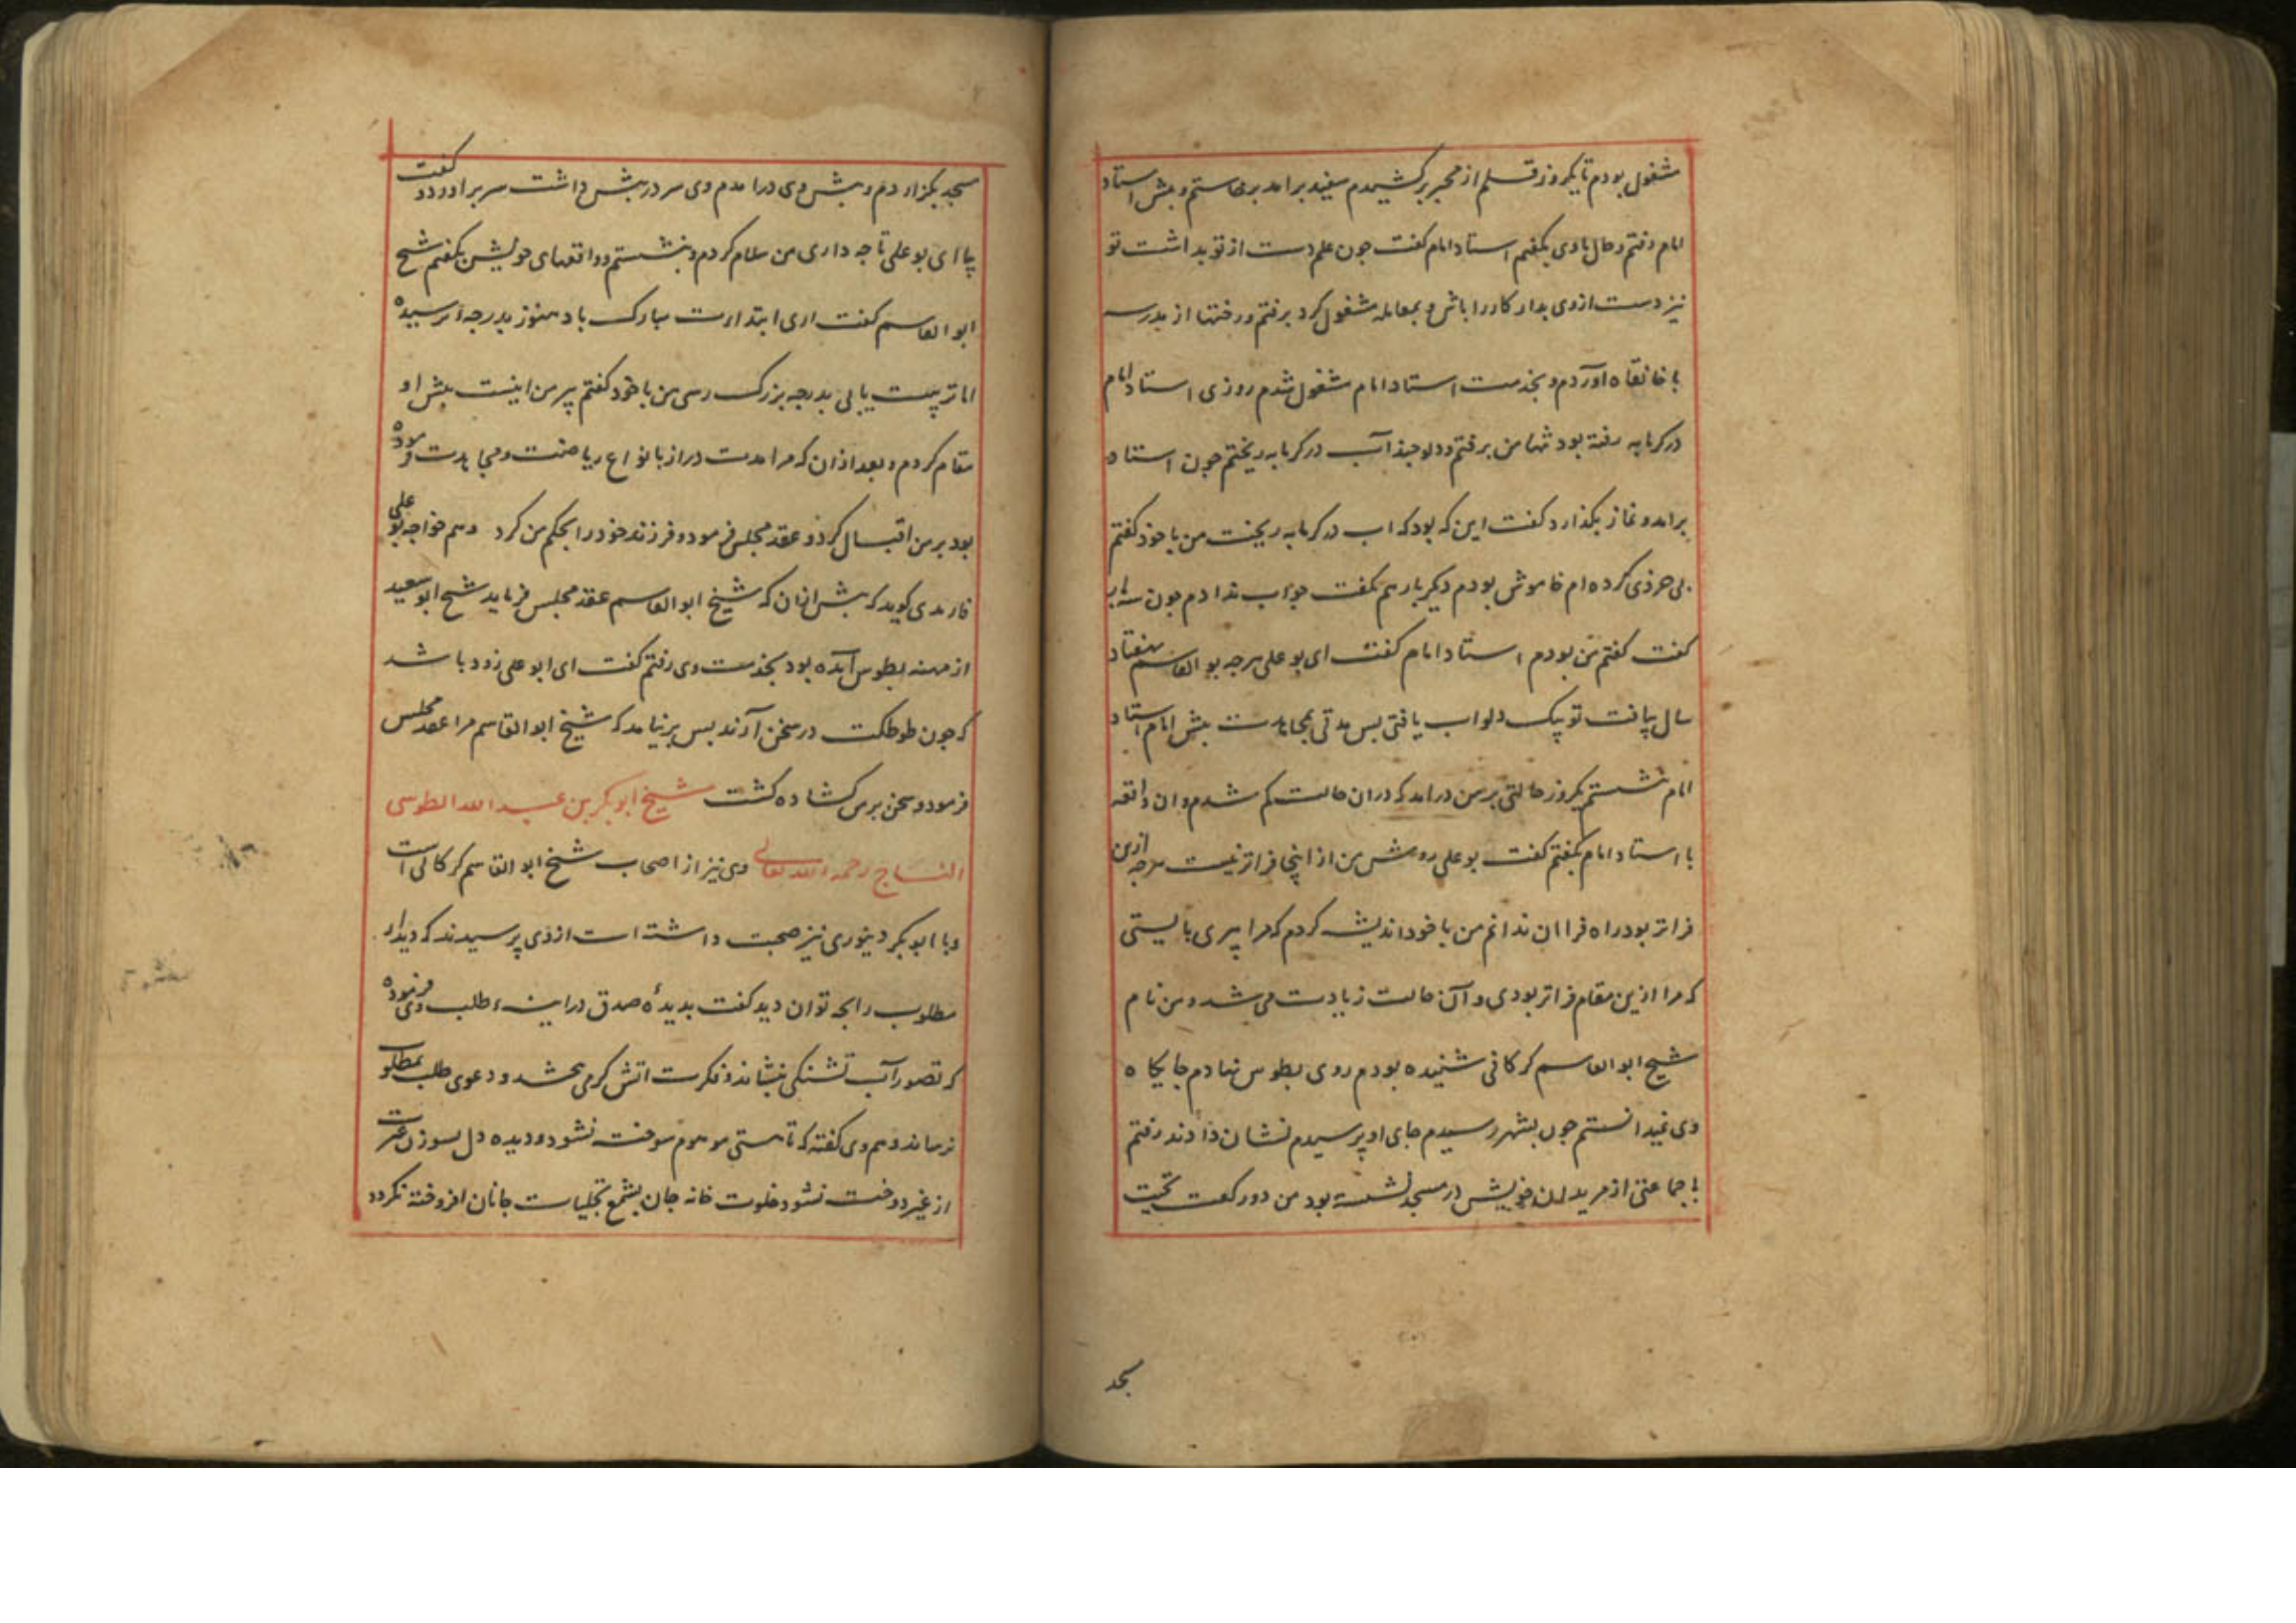 مشغول بودم تا یکروز قلم از محبر برکشیدم سفید برامد برخاستم و پیش استاد
امام رفتم و حال باوی بگفتم استاد امام گفت چون علم دست از تو بداشت تو
نیز دست ازوی بدار کار را باش و بمعامله مشغول کرد برفتم و رختها از مدرسه
با خانقاه آوردم و بخدمت استاد امام مشغول شدم روزی استاد امام
در کرمابه رفته بود تنها من برفتم و دلو چند آب در کرمابه ریختم چون استاد
برامد و نماز بگذارد گفت این که بود که اب در کرمابه ریخت من با خود گفتم
بی خردی کرده ام خاموش بودم دیگر بار هم بگفت جواب ندادم چون سه بار
گفت گفتم من بودم استاد امام گفت ای بو علی هرچه بو القاسم بهفتاد
سال یافت تو بیک دلو اب یافتی پس مدتی بمجاهدت پیش امام استاد
امام نشستم یکروز حالتی بر من درامد که دران حالت کم شدم و ان واقعه
با استاد امام بگفتم گفت بو علی روش من از اینجا فراتر نیست هرچه ازین
فراتر بود راه فرا ان ندانم من با خود اندیشه کردم که مرا پیری بایستی
که مرا ازین مقام فراتر بودی و آن حالت زیادت می شد و من نام
شیخ ابو القاسم کرکانی شنیده بودم روی بطوس نهادم جایکاه
وی نمیدانستم چون بشهر رسیدم جای او پرسیدم نشان دادند رفتم
با جماعتی از مریدان خویش در مسجد نشسته بود من دو رکعت تحیت
مسجد
مسجد بگزاردم و پیش وی درامدم وی سر در پیش داشت سر براورد و گفت
بیا ای بو علی تا چه داری من سلام کردم و بنشستم و واقعهای خویش بگفتم شیخ
ابو القاسم گفت اری ابتداءت مبارک باد هنوز بدرجۀ نرسیدۀ
اما تربیت یابی بدرجه بزرک رسی من با خود گفتم پیر من اینست پیش او
مقام کردم و بعد ازان که مرا مدت دراز بانواع ریاضت و مجاهدت فرموده
بود بر من اقبال کرد و عقد مجلس فرمود و فرزند خود را بحکم من کرد وهم خواجه بو علی
فارمدی کوید که پیش ازان که شیخ ابو القاسم عقد مجلس فرماید شیخ ابو سعید
از مهنه بطوس آمده بود بخدمت وی رفتم گفت ای ابو علی زود باشد
که چون طوطکت در سخن آرند بس برنیامد که شیخ ابو القاسم مرا عقد مجلس
فرمود و سخن بر من کشاده کشت شیخ ابو بکر بن عبد الله الطوسی
النساج رحمه الله تعالی وی نیز از اصحاب شیخ ابو القاسم کرکانی است
و با ابو بکر دینوری نیز صحبت داشته است ازوی پرسیدند که دیدار
مطلوب را بچه توان دید گفت بدیدۀ صدق در اینه طلب وی فرموده
که تصور آب تشنکی ننشاند و فکرت اتش کرمی نبخشد و دعوی طلب بمطلوب
نرساند وهم وی گفته که تا هستی موهوم سوخته نشود و دیده دل بسوزن غیرت
از غیر دوخته نشود خلوت خانه جان بشمع تجلیات جانان افروخته نکردد